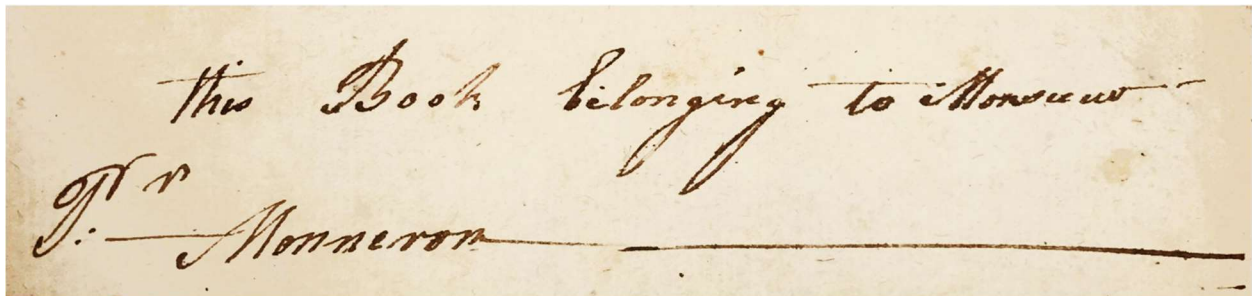 this Book bilonging to Monsieur
Monneron